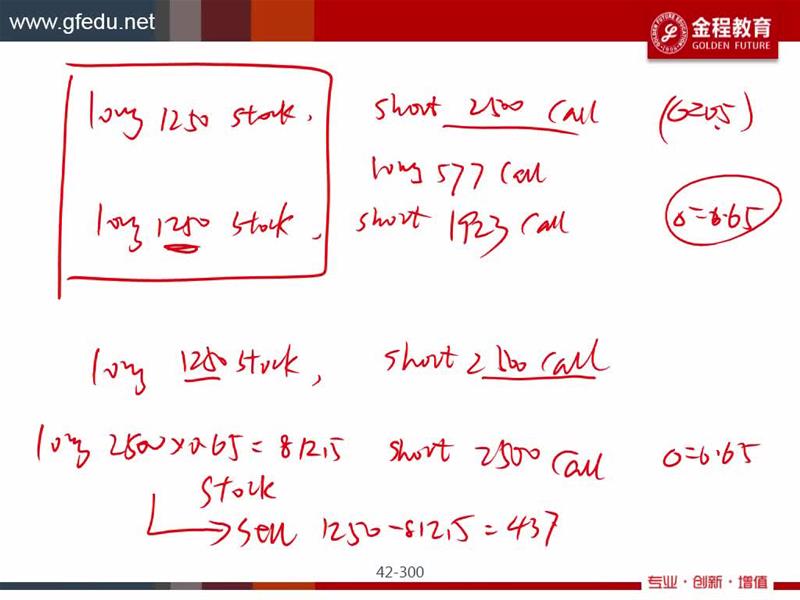 www.gfedu.net
金程教育
GOLDEN FUTURE
long 1250 stock, short 2500 call (0=0.5)
long 577 call
long 1250 stock, short 1923 call 0=0.65
long 1250 stock, short 2500 call
long 2500×0.65=812.5 short 2500 call 0=0.65
stock
sell 1250-812.5=437
42-300
专业·创新·增值